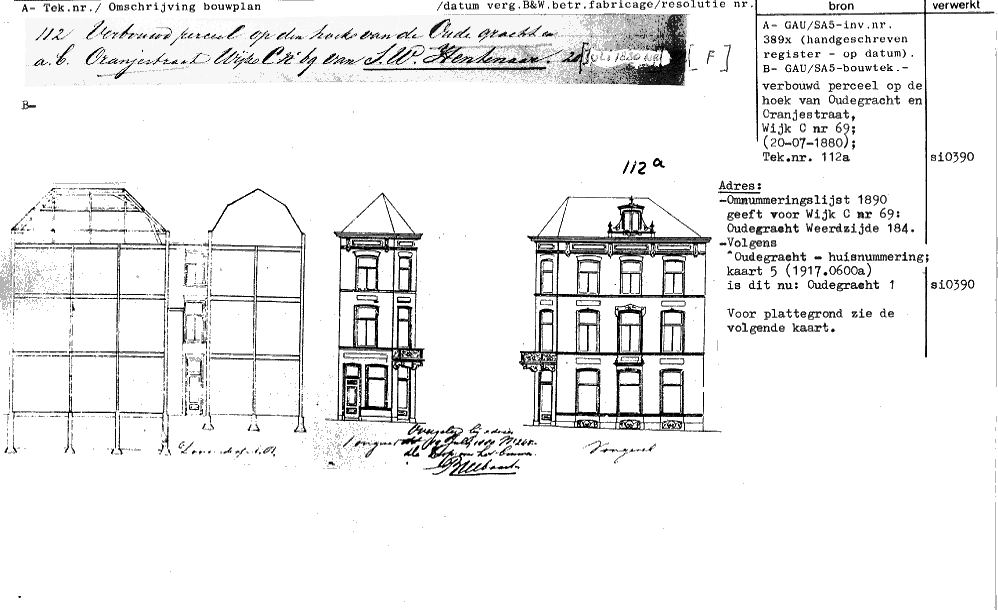 A- Tek.nr./ Omschrijving bouwplan /datum verg.B&W.betr.fabricage/resolutie nr. bron verwerkt
112 Verbouwd perceel op den hoek van de Oude gracht en
a.b. Oranjestraat Wijk C nº 69 van J.W. Hentenaar. 20 JULI 1880 [F]
B-
A- GAU/SA5-inv.nr.
389x (handgeschreven
register - op datum).
B- GAU/SA5-bouwtek.-
verbouwd perceel op de
hoek van Oudegracht en
Oranjestraat,
Wijk C nr 69;
(20-07-1880);
Tek.nr. 112a si0390
112 a
Adres:
-Omnummeringslijst 1890
geeft voor Wijk C nr 69:
Oudegracht Weerdzijde 184.
-Volgens
^Oudegracht - huisnummering;
kaart 5 (1917.0600a)
is dit nu: Oudegracht 1 si0390
Voor plattegrond zie de
volgende kaart.
Voorgevel